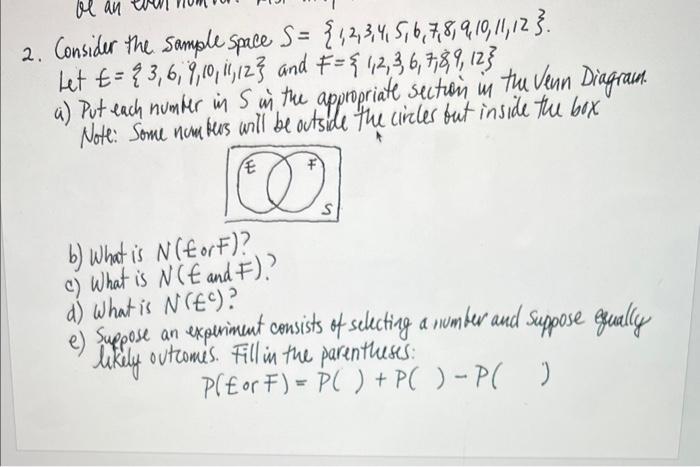 be an even
2. Consider the sample space S = {1,2,3,4,5,6,7,8,9,10,11,12}.
Let E = {3,6,9,10,11,12} and F = {1,2,3,6,7,8,9,12}
a) Put each number in S in the appropriate section in the Venn Diagram.
Note: Some numbers will be outside the circles but inside the box
E F
S
b) What is N(E or F)?
c) What is N(E and F)?
d) What is N(Eᶜ)?
e) Suppose an experiment consists of selecting a number and suppose equally
likely outcomes. Fill in the parentheses:
P(E or F) = P( ) + P( ) - P( )